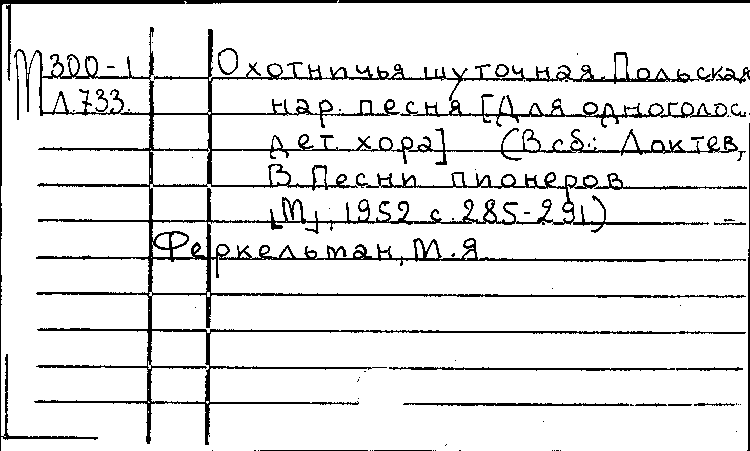 М 300-1 Охотничья шуточная. Польская
Л 733. нар. песня [Для одноголос.
дет. хора] (В сб.: Локтев,
В. Песни пионеров
[М], 1952 с. 285-291)
Феркельман, М.Я.